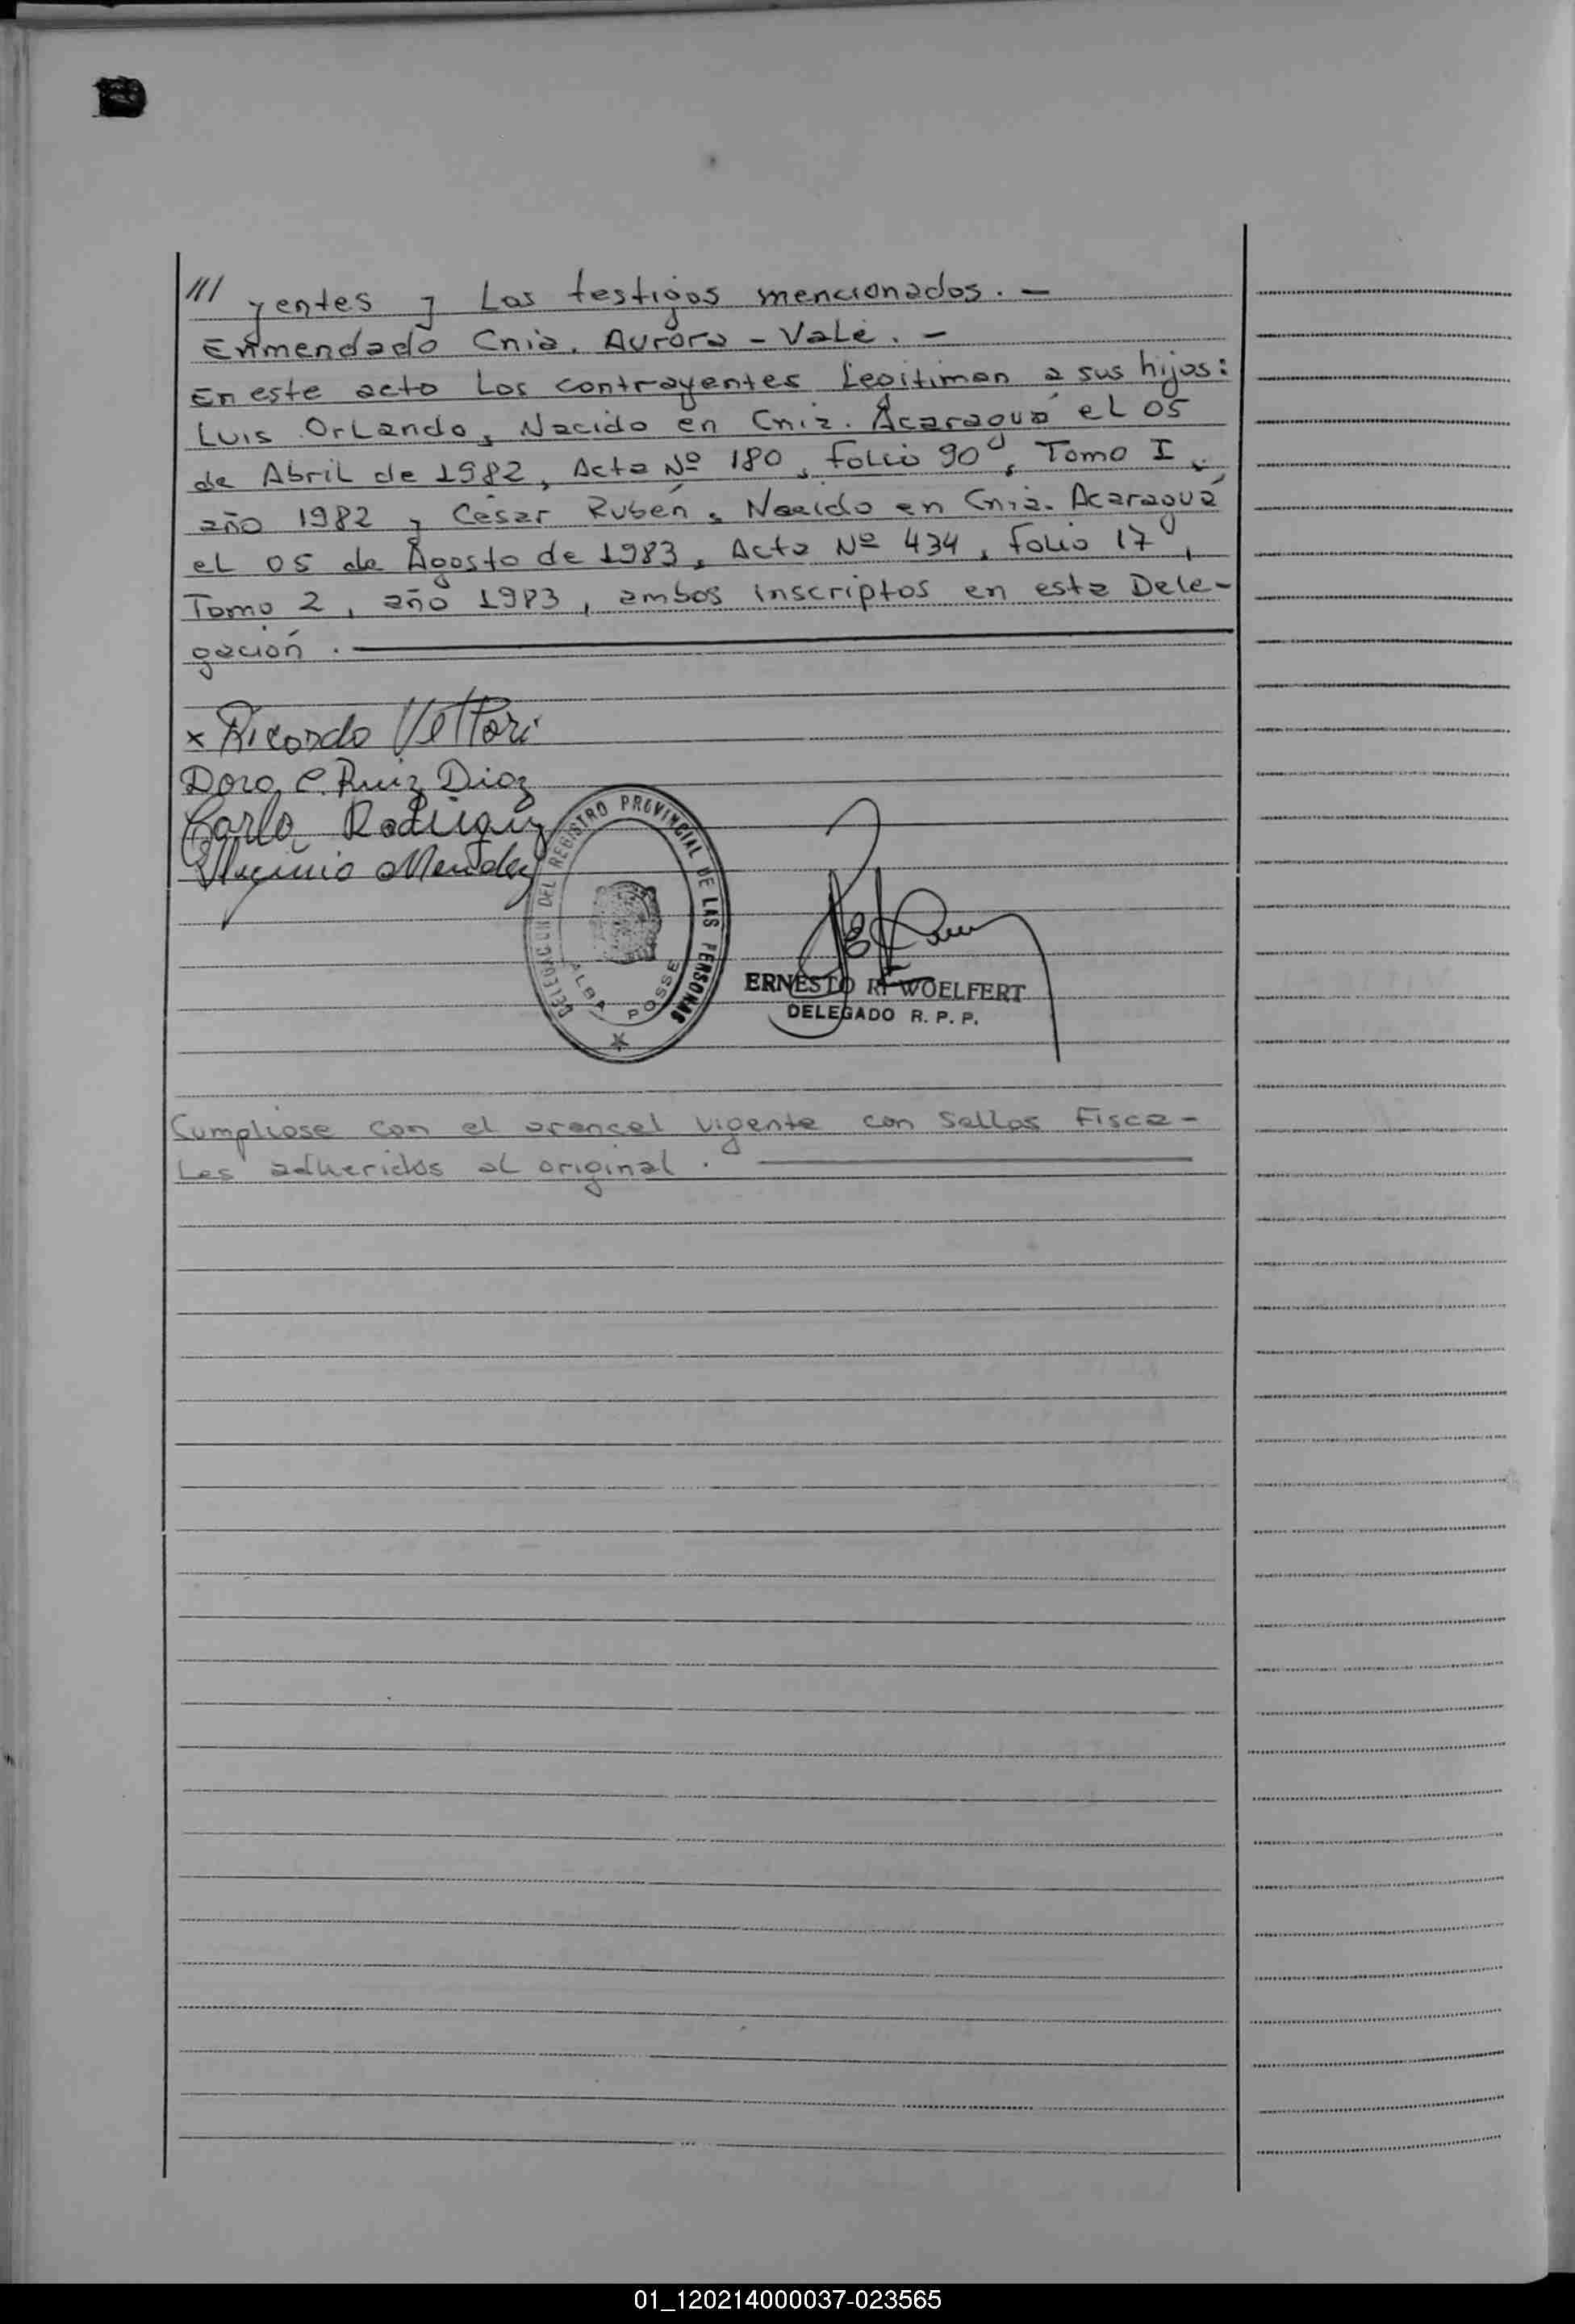 /// yentes y Los testigos mencionados. –
Enmendado Cnia. Aurora – Vale. –
En este acto Los contrayentes Legitiman a sus hijos:
Luis Orlando, Nacido en Cnia. Acaraguá el 05
de Abril de 1982, Acta Nº 180, folio 90, Tomo I,
año 1982 y César Rubén, Nacido en Cnia. Acaraguá
el 05 de Agosto de 1983, Acta Nº 434, folio 17,
Tomo 2, año 1983, ambos inscriptos en esta Dele-
gación.
x Ricardo Vettori
Dora C. Ruiz Diaz
Carlo
Mendez
DELEGACION DEL REGISTRO PROVINCIAL DE LAS PERSONAS
ALBA POSSE
ERNESTO R. WOELFERT
DELEGADO R. P. P.
Cumpliose con el arancel vigente con Sellos Fisca-
les adheridos al original.
01_120214000037-023565